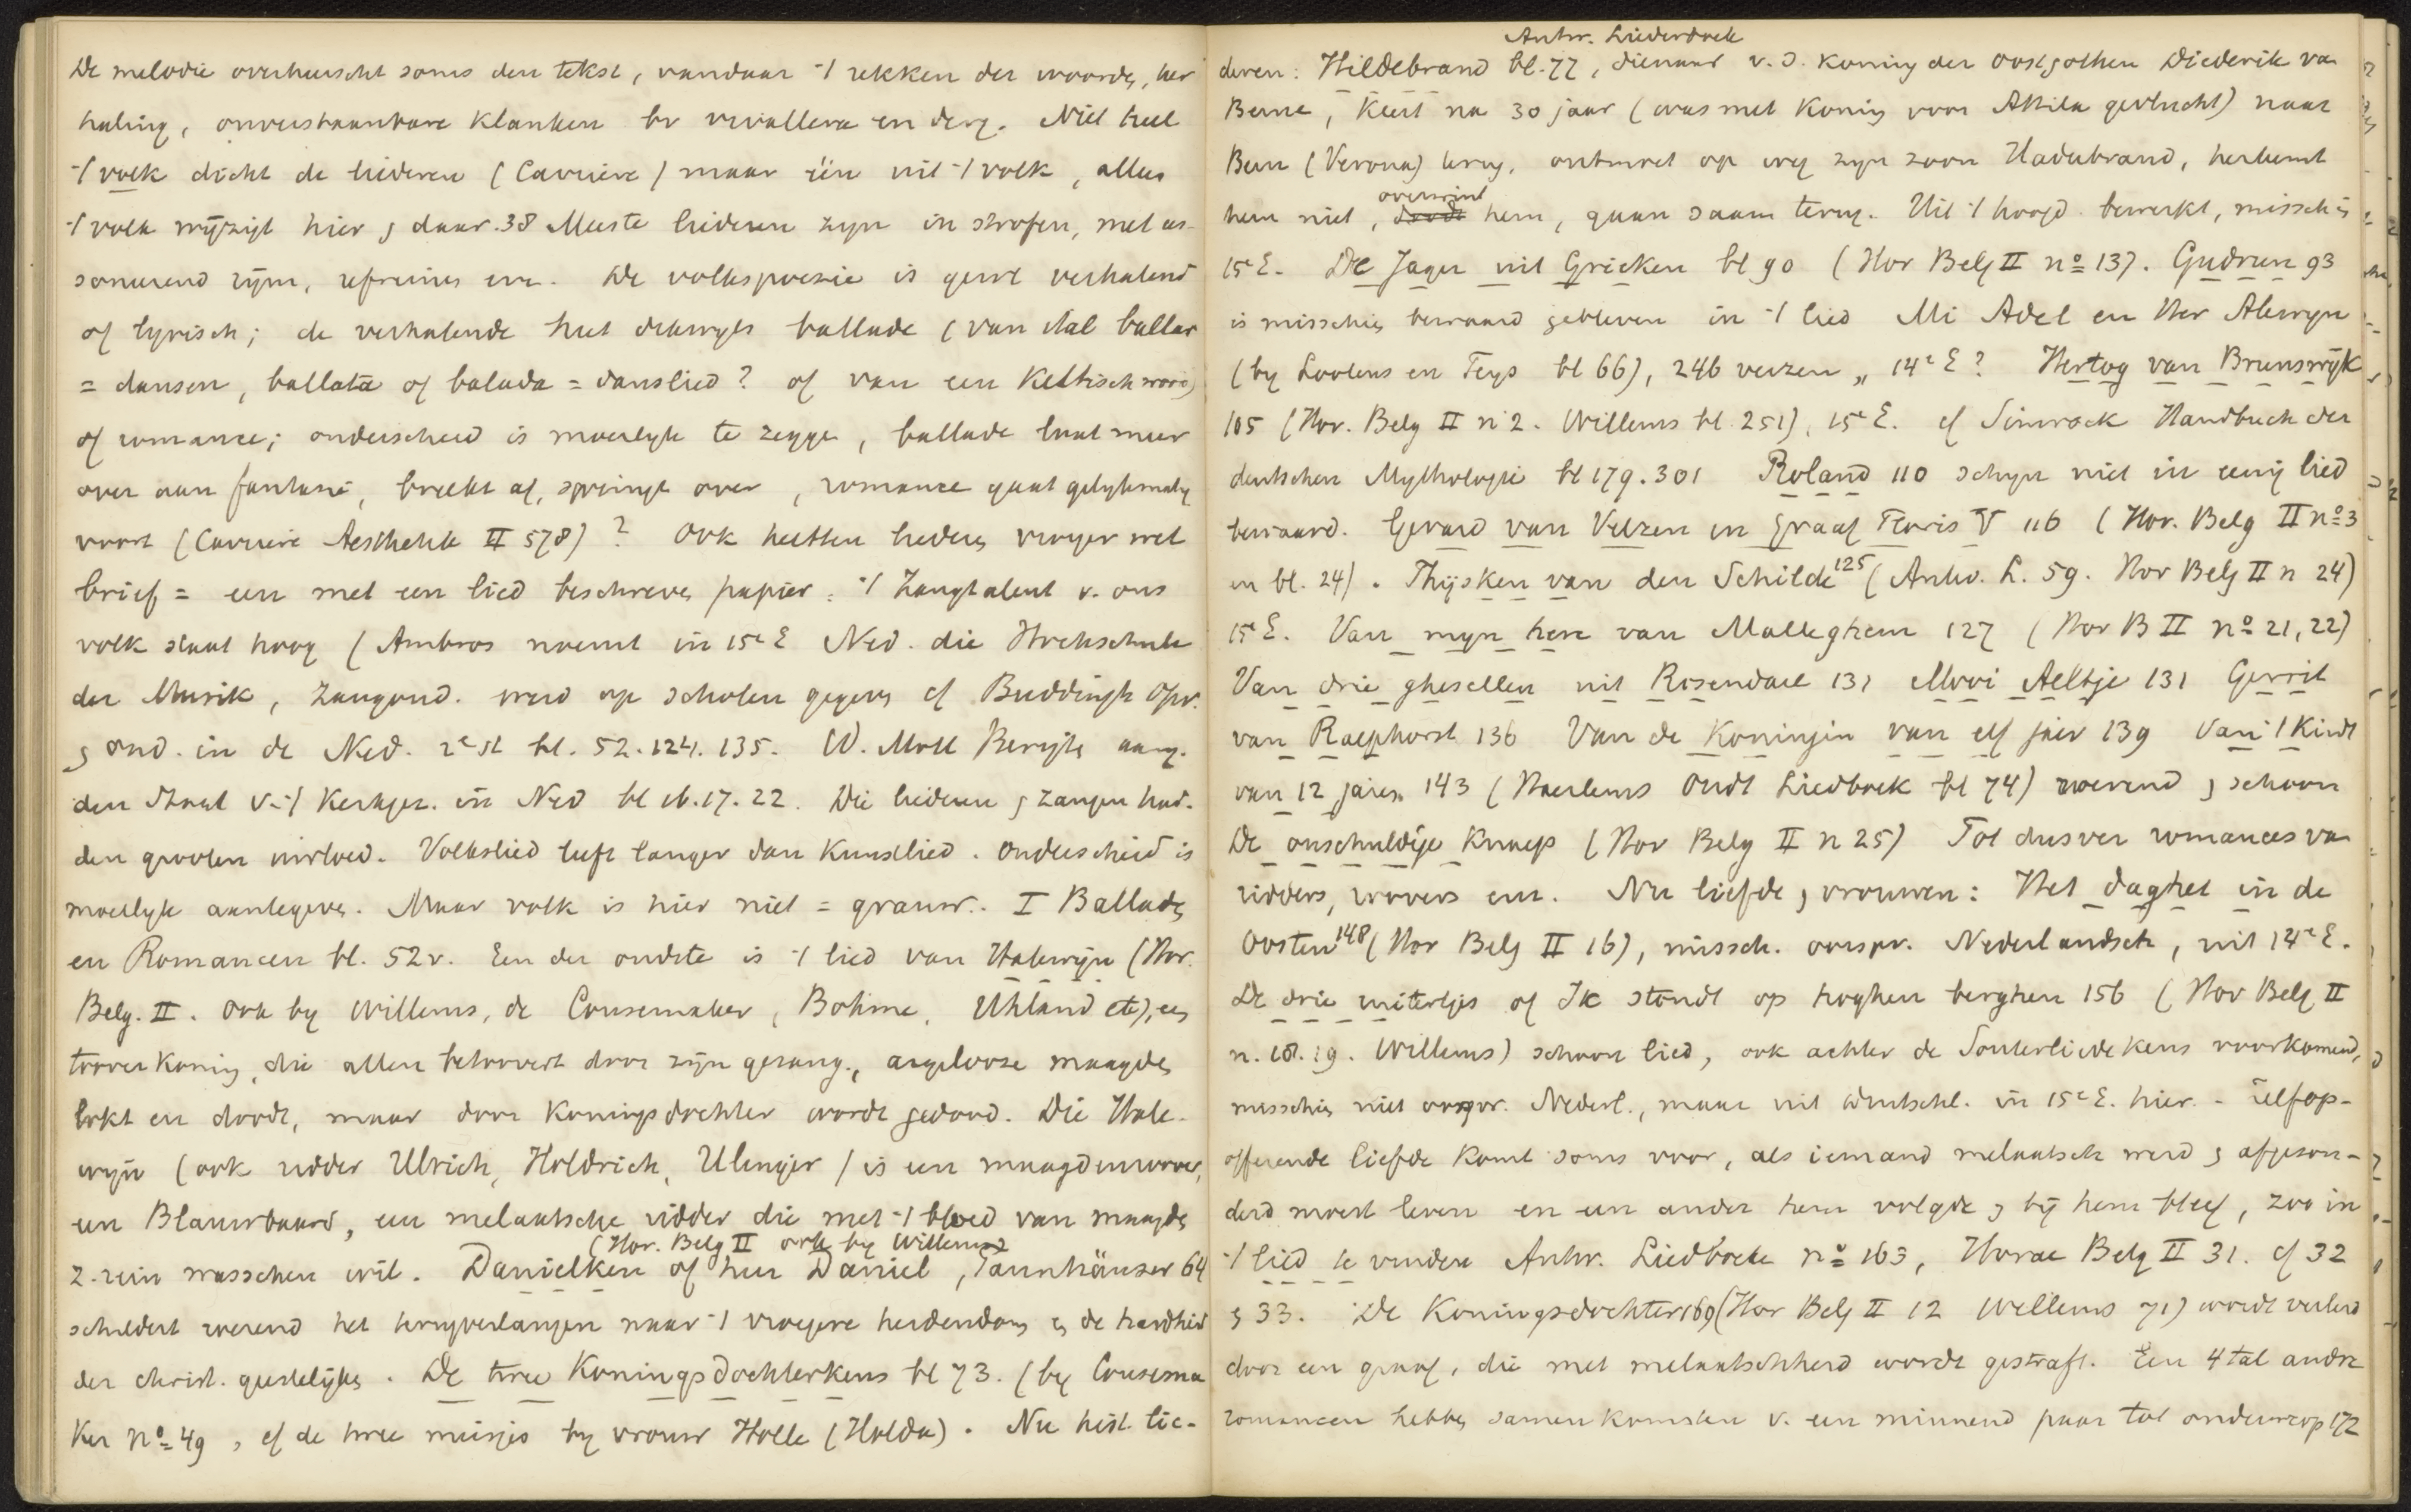 De melodie overheerscht soms den tekst, vandaar 't rekken der woorden, her
haling, onverstaanbare klanken bv vivallera en derg. Niet heel
't volk dicht de liederen (Carriere) maar één uit 't volk, alles
't volk wijzigt hier en daar. 38 Meeste liederen zyn in strofen, met as-
sonerend rijm, refreinen enz. De volkspoezie is gewl verhalend
of lyrisch; de verhalende heet dikwyls ballade (van ital ballar
= dansen, ballata of balada = danslied? of van een Keltisch woord)
of romance; onderscheid is moeilyk te zeggen, ballade laat meer
over aan fantasie, breekt af, springt over, romance gaat gelykmatig
voort (Carriere Aesthetik II 578)? Ook heetten liederen vroeger wel
brief = een met een lied beschreven papier. 't Zangtalent v. ons
volk staat hoog (Ambros noemt in 15e E Ned. die Hochschule
der Musik, Zangond. werd op scholen gegeven cf Buddingh Opv.
en ond. in de Ned. 2e st bl. 52.124.135. W. Moll Kerkges. aang.
den Staat v. 't Kerkgez. in Ned bl 16.17.22. Die liederen en zangen had-
den grooten invloed. Volkslied leeft langer dan Kunstlied. Onderscheid is
moeilyk aantegeven. Maar volk is hier niet = grauw. I Balladen
en Romancen bl. 52v. Een der oudste is 't lied van Halewijn (Hor.
Belg. II. Ook by Willems, de Coussemaker, Böhme, Uhland etc), een
tooverkoning, die allen betoovert door zijn gezang, argelooze maagden
lokt en doodt, maar door Koningsdochter wordt gedood. Die Hale-
wijn (ook ridder Ulrich, Holdrich, Ulinger) is een maagdenroover,
een Blauwbaard, een melaatsche ridder die met 't bloed van maagden
(Hor. Belg II ook by Willems)
z. rein wasschen wil. Danielken of heer Daniel, Tannhäuser 64
schildert roerend het terugverlangen naar 't vroegere heidendom en de hardheid
der christ. geestelijken. De twee Koningsdochterkens bl 73. (by Coussema
ker no 49, cf de twee meisjes by vrouw Holle (Holda). Nu hist. lie-
Antw. Liederboek
deren: Hildebrand bl. 77, dienaar v. d. koning der Oostgothen Diederik van
Berne, Keert na 30 jaar (was met Koning voor Attila gevlucht) naar
Bern (Verona) terug, ontmoet op weg zijn zoon Hadubrand, herkent
overwint
hem niet, doodt hem, gaan saam terug. Uit 't hoogd. bewerkt, misschien
15e E. De Jager uit Grieken bl 90 (Hor Belg II no 13). Gudrun 93
is misschien bewaard gebleven in 't lied Mi Adel en Her Alewyn
(by Lootens en Feys bl 66), 246 verzen „ 14e E? Hertog van Brunswijk
105 (Hor. Belg II n 2. Willems bl. 251), 15e E. cf Simrock Handbuch der
deutschen Mythologie bl 179.301 Roland 110 schijnt niet in eenig lied
bewaard. Gerard van Velzen en Graaf Floris V 116 (Hor. Belg II no 3
en bl. 24). Thijsken van den Schilde 125 (Antw. L. 59. Hor Belg II n 24)
15e E. Van myn here van Malleghem 127 (Hor B II no 21,22)
Van drie ghesellen uit Rosendael 131 Mooi Aeltje 131 Gerrit
van Raephorst 136 Van de Koningin van elf jaer 139 Van 't Kindt
van 12 jaren 143 (Haerlems Oudt Liedboek bl 74) roerend en schoon
De onschuldige Knaep (Hor Belg II n 25) Tot dusver romances van
ridders, roovers enz. Nu liefde en vrouwen: Het daghet in de
Oosten 148 (Hor Belg II 16), missch. oorspr. Nederlandsch, uit 14e E.
De drie ruitertjes of Ik stondt op hooghen berghen 156 (Hor Belg II
n. 18.19. Willems) schoon lied, ook achter de Souterliedekens voorkomend,
misschien niet oorspr. Nederl., maar uit Duitschl. in 15e E. hier. - Zelfop-
offerende liefde komt soms voor, als iemand melaatsch werd en afgezon-
derd moest leven en een ander hem volgde en bij hem bleef, zoo in
't lied te vinden Antw. Liedboek no 163, Horae Belg II 31. cf 32
en 33. De Koningsdochter 169 (Hor Belg II 12 Willems 71) wordt verleid
door een graaf, die met melaatschheid wordt gestraft. Een 4 tal andre
romancen hebben samenkomsten v. een minnend paar tot onderwerp 172